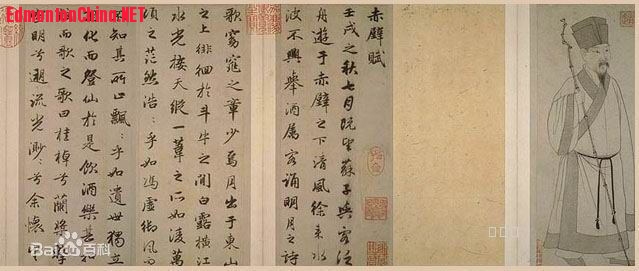 EdmontonChina.NET
赤壁賦
壬戌之秋七月既望蘇子與客泛
舟遊于赤壁之下清風徐來水
波不興舉酒屬客誦明月之詩
歌窈窕之章少焉月出于東山
之上徘徊於斗牛之間白露橫江
水光接天縱一葦之所如凌萬
頃之茫然浩〻乎如馮虛御風而
不知其所止飄〻乎如遺世獨立
化而登仙於是飲酒樂甚
而歌之歌曰桂棹兮蘭槳擊
明兮遡流光渺〻兮余懷
Bai百科